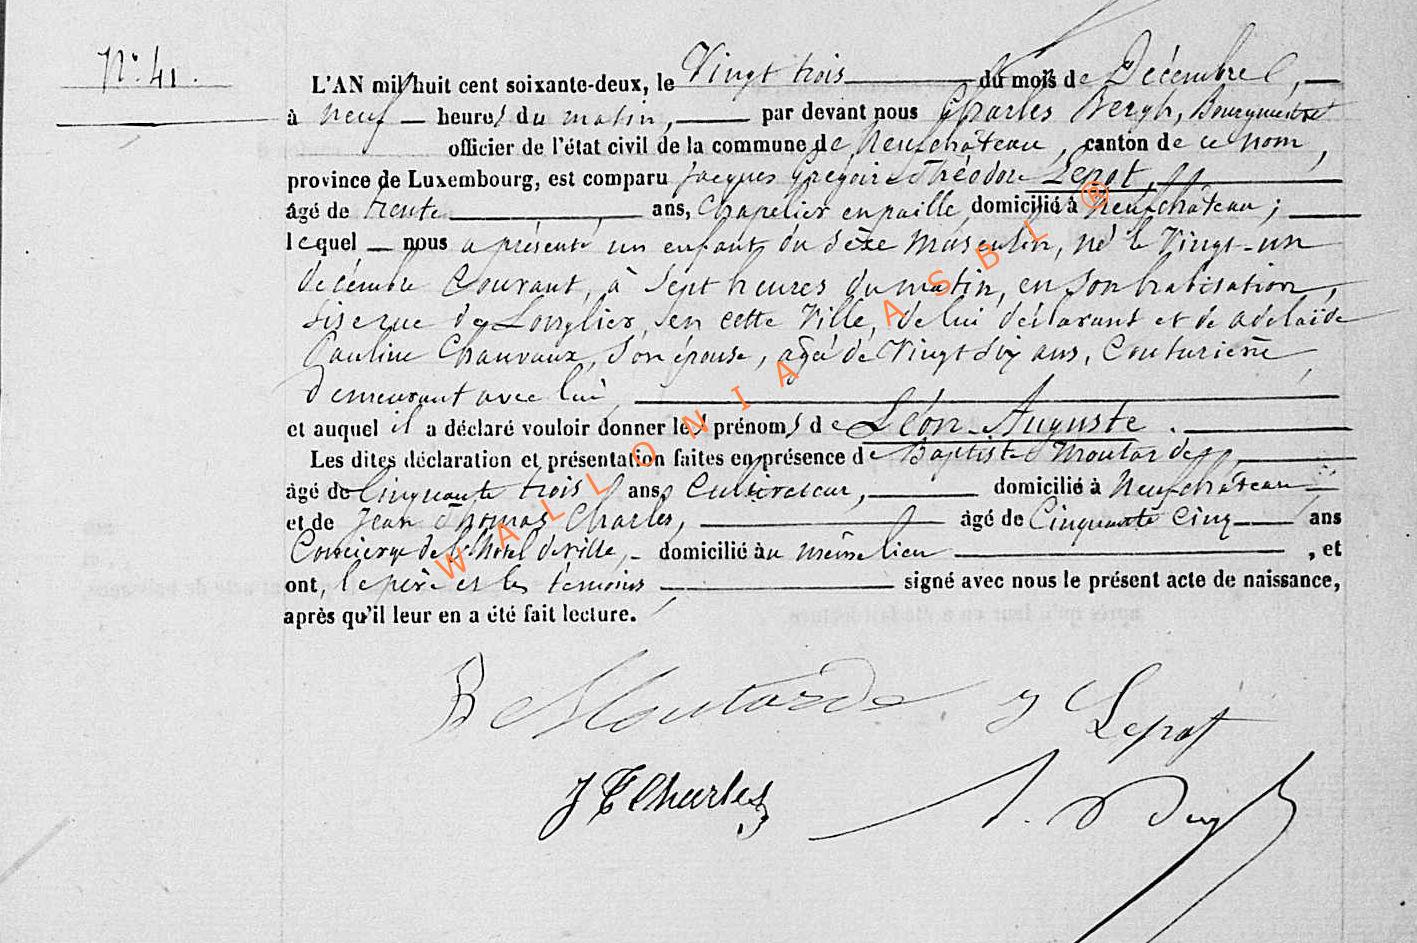 N° 41.
L'AN mil huit cent soixante-deux, le Vingt trois du mois de Décembre,
à neuf heures du matin, par devant nous Charles Bergh, Bourgmestre
officier de l'état civil de la commune de Neufchâteau, canton de ce nom,
province de Luxembourg, est comparu Jacques Grégoire Théodore Lepot,
âgé de trente ans, Chapelier en paille, domicilié à Neufchâteau;
lequel nous a présenté un enfant du sèxe masculin, né le Vingt-un
décembre Courant, à Sept heures du matin, en son habitation,
sise rue de Longlier, en cette Ville, de lui déclarant et de adelaïde
Pauline Chauvaux, Son épouse, agée de Vingt Six ans, Couturière,
demeurant avec lui,
et auquel il a déclaré vouloir donner les prénoms de Léon-Auguste.
Les dites déclaration et présentation faites en présence de Baptiste Moutarde,
âgé de Cinquante trois ans, Cultivateur, domicilié à Neufchâteau,
et de Jean Thomas Charles, âgé de Cinquante Cinq ans
Concierge de l'hotel de ville, domicilié au même lieu, et
ont, le père et les témoins signé avec nous le présent acte de naissance,
après qu'il leur en a été fait lecture.
B Moutarde J Lepot
J T Charles
WALLONIA ASBL ®